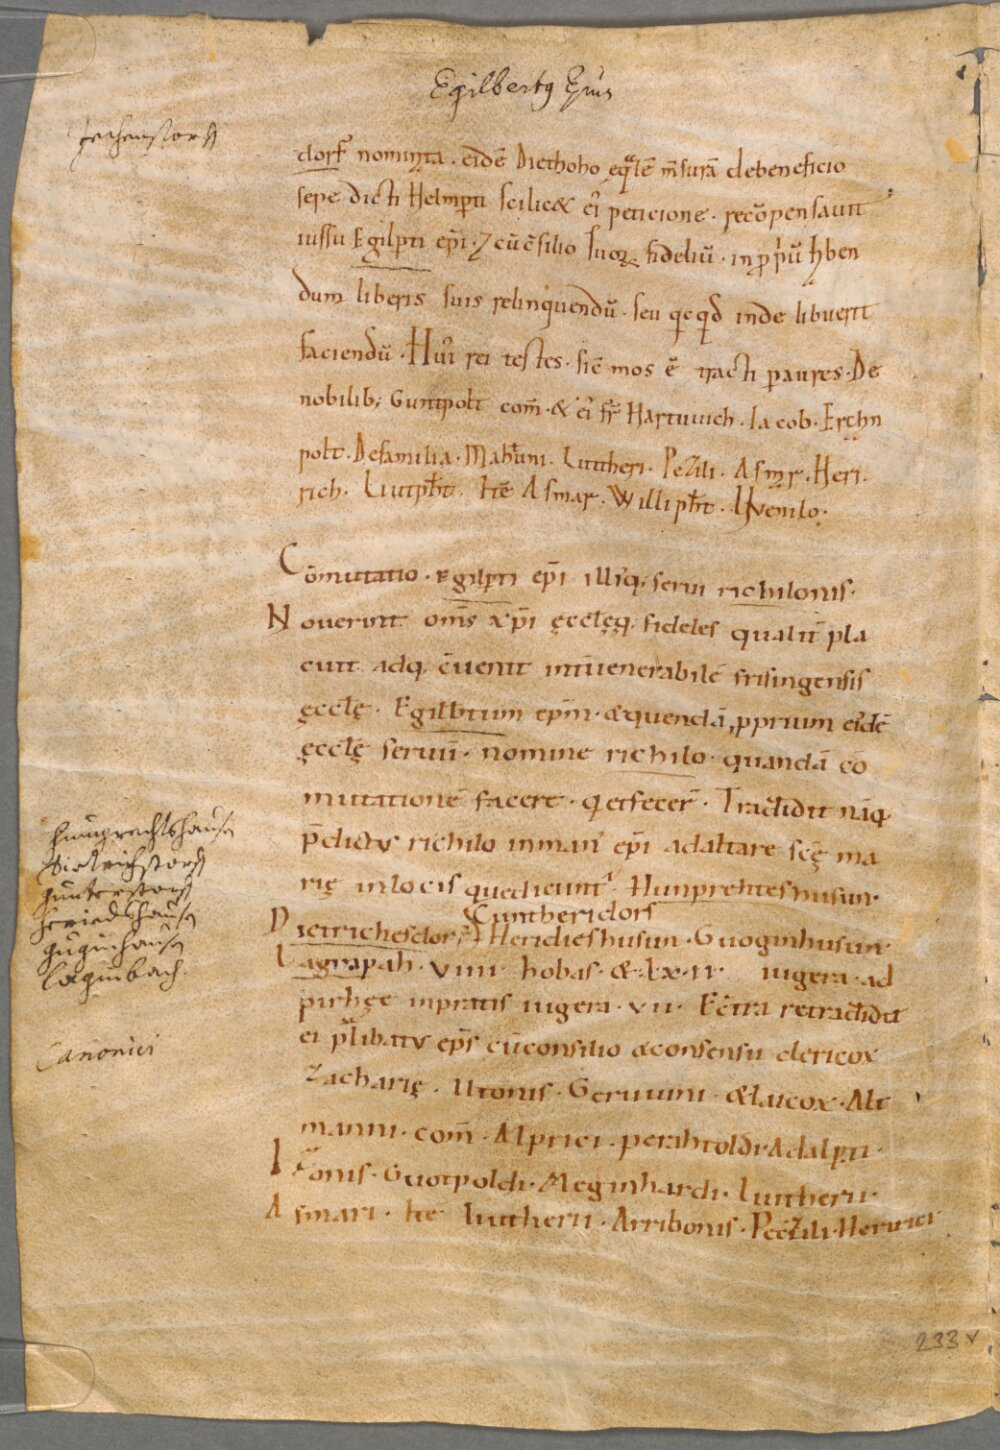 Egilbertꝰ Epus
dorf nominata · eidē Diethoho ęq̄lē m̄surā debeneficio
sepe dicti Helmp̱ti scilic& ei' peticione · recōpensavit
iussu Egilp̱ti ep̄i · ⁊ cū c̄silio suoꝝ fideliū · in pp̄'ū h̄ben
dum liberis suis relinquendū · seu qcqd inde libuerit
faciendū · Hui' rei testes · sic̄ mos ē tracti p aures · De
nobilib; Guntpolt com̄ · & ei' fr̄ Hartuuich · Iacob · Erchn
polt · Defamilia · Liutheri · Pezili · Asmr · Heri
rich · Liutpħt · Itē Asmar · Willipħt ·
Cōmutatio · Egilp̱ti ep̄i illi'q; serui richilonis ·
Nouerint om̄s xp̄i ęcclęq; fideles qualit̄ pla
cuit adq; c̄uenit int̄ uenerabilē frisingensis
ęcclę · Egilb̄tum ep̄m · & quendā pprium eidē
ęcclę seruū · nomine richilo · quandā cō
mutationē facere · q& fecer̄ · Tradidit nāq;
p̄dictus richilo inman' ep̄i adaltare scę ma
rię inlocis quedicunt' · Hunprehteshusun ·
Cuntheridorf
Dietrichesdorf · Heridieshusun · Guoginhusun ·
Lagrapah · VIIII hobas · & LX · II · iugera · ad
pirhge inpratis iugera · VII · Ec̄tra retradidit
ei p̄libatus ep̄s cū consilio & consensu clericoꝝ
Zacharię · Utonis · Geruuini · & laicoꝝ · Alt
manni · com̄ · Alprici · perahtoldi · Adalp̱ti ·
Izonis · Guotpoldi · Meginhardi · Liutherii ·
Asmari · Itē Liutherii · Arribonis · Peczili · Heririci
Hunprechtshausn
Dietrichstorff
Gunterstorff
Heriedshausn
Guginhausn
Laginbach
Canonici
233 v